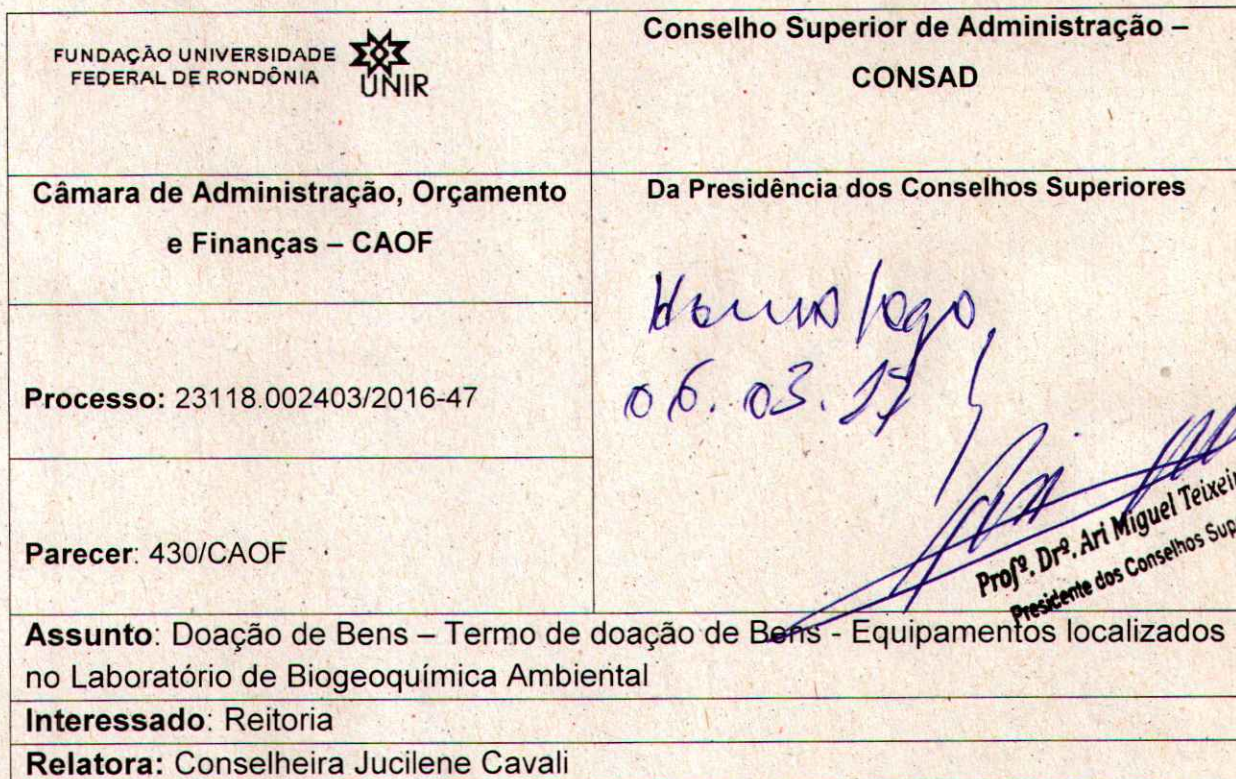 FUNDAÇÃO UNIVERSIDADE
FEDERAL DE RONDÔNIA
UNIR
Conselho Superior de Administração –
CONSAD
Câmara de Administração, Orçamento
e Finanças – CAOF
Da Presidência dos Conselhos Superiores
Homologo
06.03.17
Processo: 23118.002403/2016-47
Parecer: 430/CAOF
Profº. Drº. Ari Miguel Teixeir
Presidente dos Conselhos Sup
Assunto: Doação de Bens – Termo de doação de Bens - Equipamentos localizados
no Laboratório de Biogeoquímica Ambiental
Interessado: Reitoria
Relatora: Conselheira Jucilene Cavali